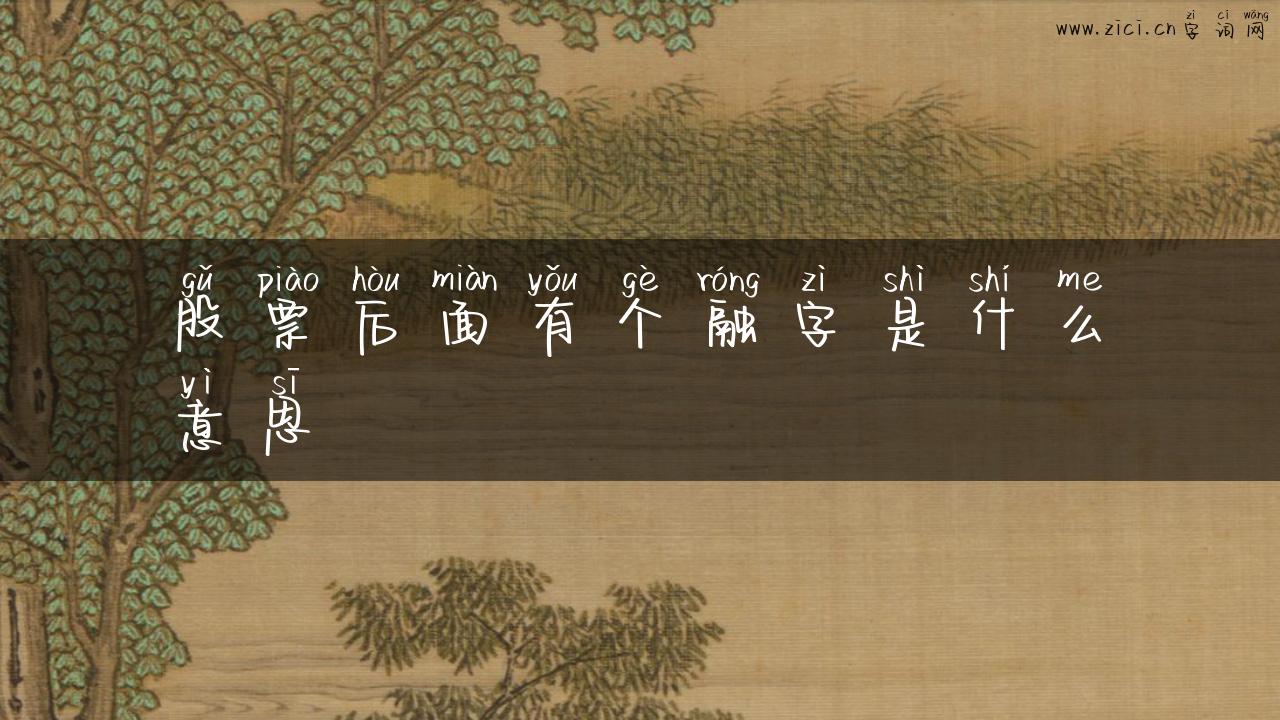 zì cí wǎng
www.zici.cn 字词网
gǔ piào hòu miàn yǒu gè róng zì shì shí me
股票后面有个融字是什么
yì sī
意思